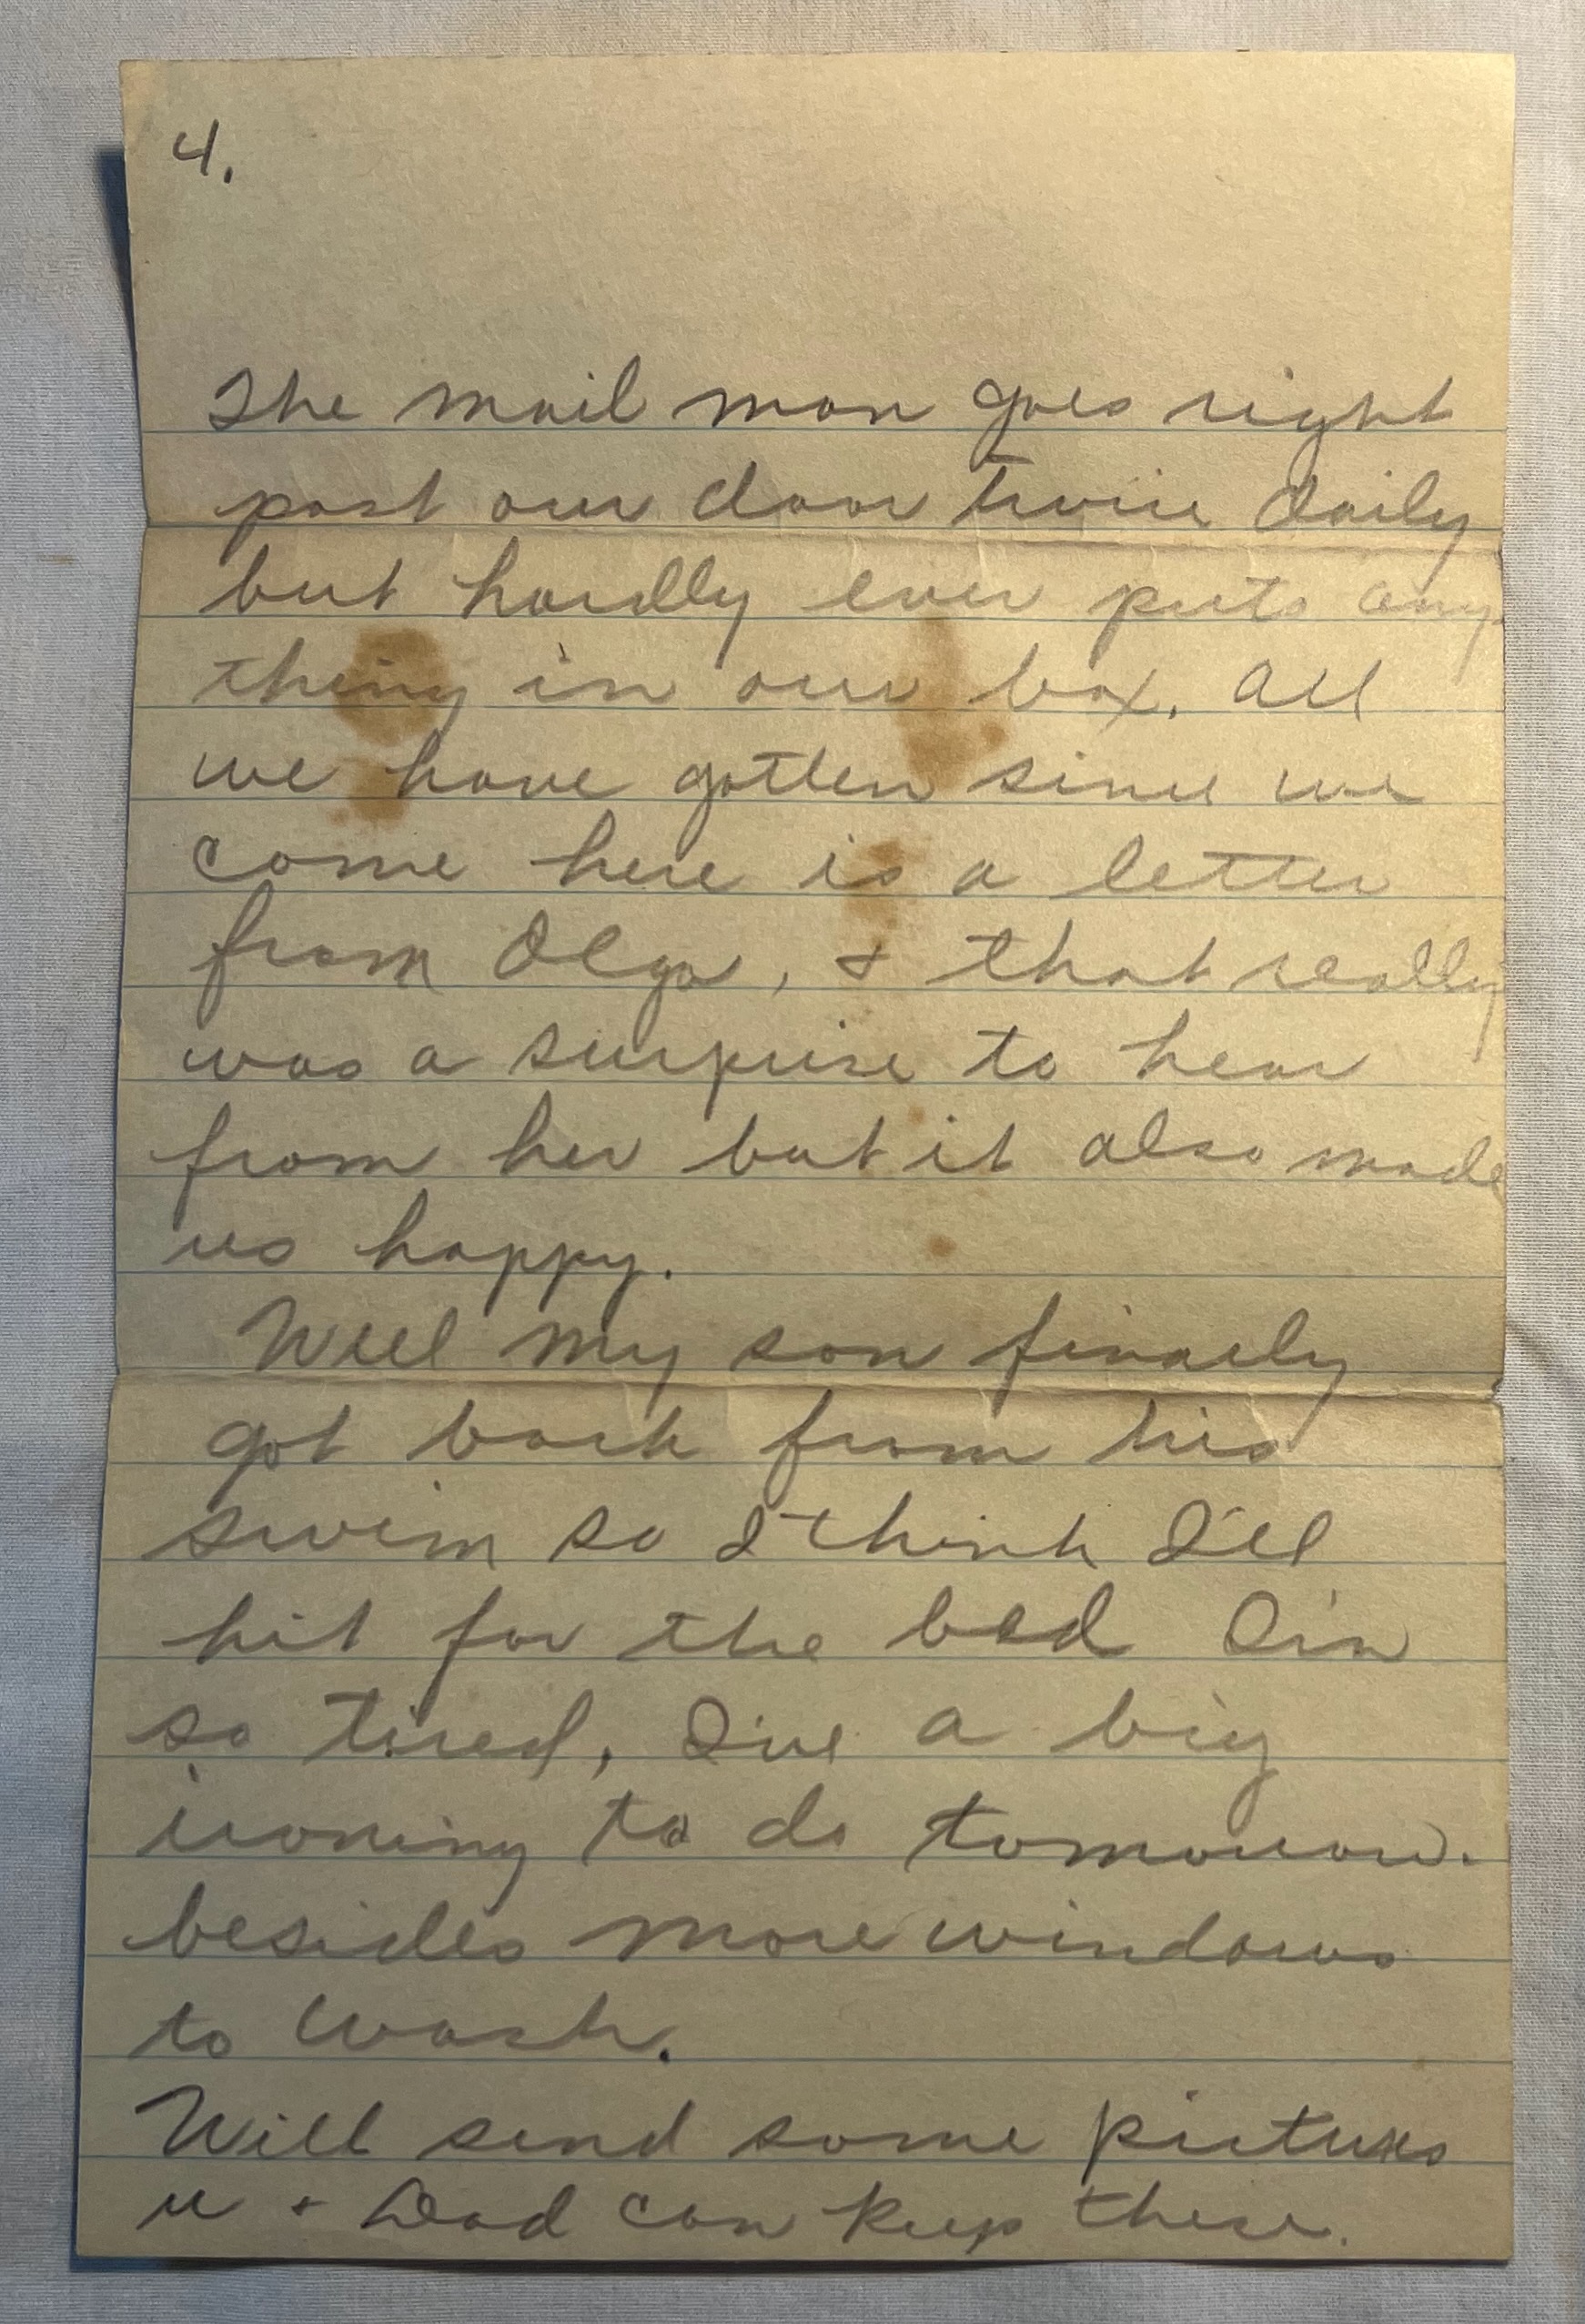 4.
The mail man goes right
past our door twice daily
but hardly ever puts any
thing in our box. All
we have gotten since we
come here is a letter
from Olga, & that really
was a surprise to hear
from her but it also made
us happy.
Well my son finaely
got back from his
swim so I think I'll
hit for the bed I'm
so tired, I've a big
ironing to do tomorrow.
besides more windows
to wash.
Will send some pictures
u & Dad can keep these.